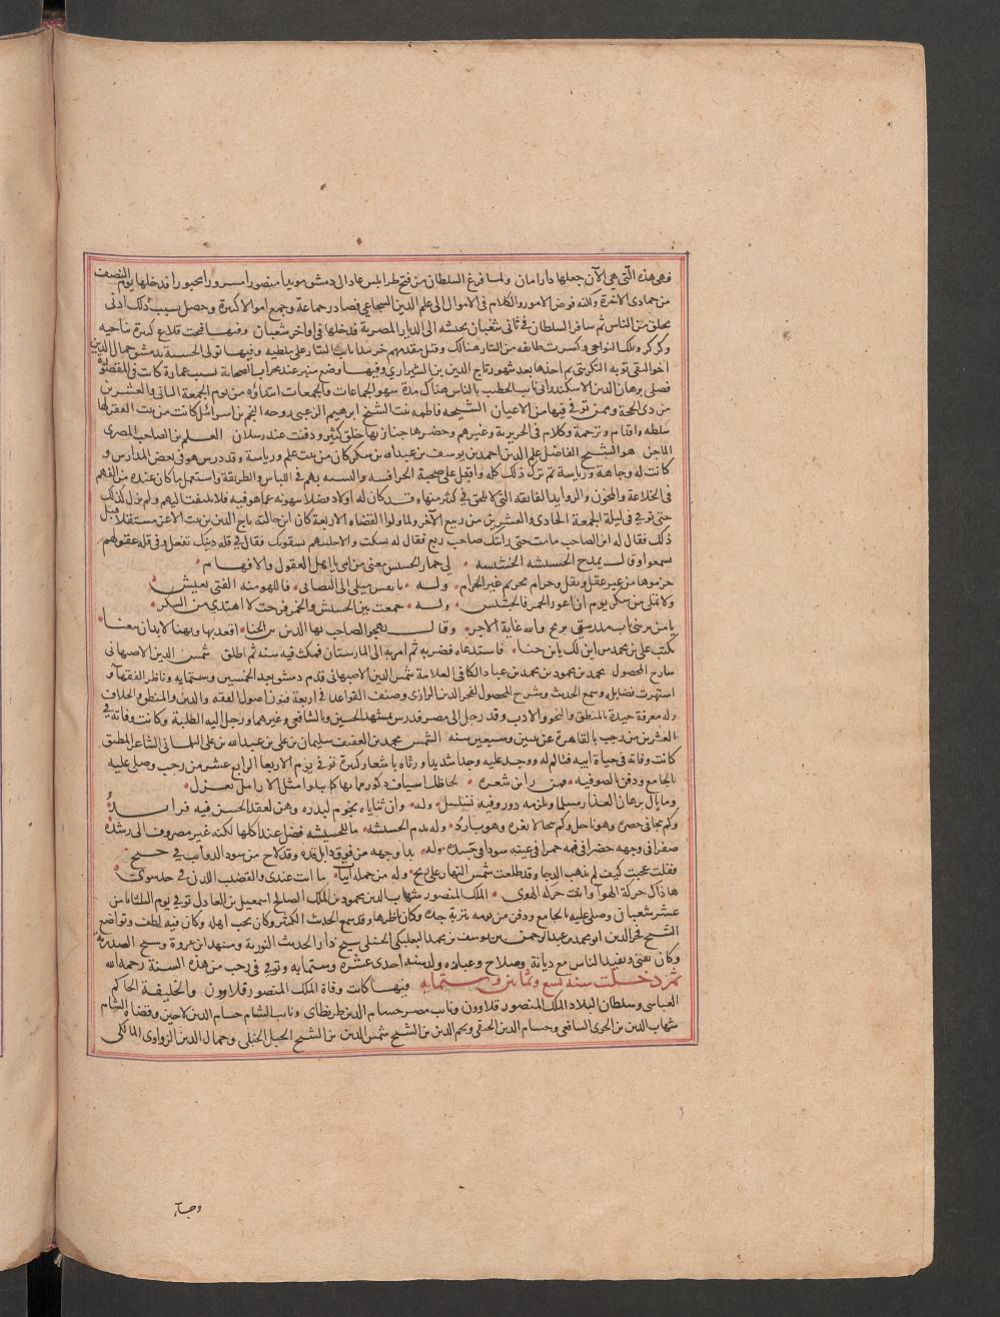 فهي هذه التي هي الآن جعلها دار امان ولما فرغ السلطان من فتح طرابلس عاد الى دمشق مويدا منصورا مسرورا محبورا فدخلها يوم النصف
من جمادى الآخرة ولكنه فوض الامور والكلام في الاموال الى علم الدين الشجاعي فصادر جماعة وجمع اموالا كثيرة وحصل بسبب ذلك اذى
بخلق من الناس ثم سافر السلطان في ثاني شعبان بجيشه الى الديار المصرية فدخلها في اواخر شعبان وفيها فتحت قلاع كثيرة بناحية
وكركر وتلك النواحي وكسرت طائفة من التتار هنالك وقتل مقدمهم خربندا نائب التتار على ملطيه وفيها تولى الحسبة بدمشق جمال الدين
اخو التقي توبة التكريتي ثم اخذها بعد شهور تاج الدين بن الشيرازي وفيها وضع منبر عند محراب الصحابة لسبب عمارة كانت في المقصورة
فصلى برهان الدين الاسكندراني نائب الخطيب بالناس هناك مدة شهر الجماعات والجمعات ابتداؤه من يوم الجمعة الثاني والعشرين
من ذي الحجة وممن توفي فيها من الاعيان الشيخة فاطمة بنت الشيخ ابرهيم الزعبي زوجة النجم بن اسرائيل كانت من بيت الفقر لها
سلطه واقدام وترجمة وكلام في الحريرية وغيرهم وحضر جنازتها خلق كثير ودفنت عند رسلان العلم بن الصاحب المصري
الماجن هو الشيخ الفاضل علم الدين احمد بن يوسف بن عبدالله بن سكر كان من بيت علم ورياسة وقد درس هو في بعض المدارس و
كانت له وجاهة ورياسة ثم ترك ذلك كله واقبل على صحبة الحرافشه والتشبه بهم في اللباس والطريقة واستعمل ما كان عنده من الفهم
في الخلاعة والمجون والزوايد الفائقه التي لا تلحق في كثير منها وقد كان له اولاد فضلا ينهونه عما هو فيه فلا يلتفت اليهم ولم يزل كذلك
حتى توفي في ليلة الجمعة الحادي والعشرين من ربيع الآخر ولما ولوا القضاة الاربعة كان ابن خالته تاج الدين بن بنت الاعز مستقلا قبل
ذلك فقال له ابن الصاحب ما مت حتى رايتك صاحب ربع فقال له تسكت والا خليتهم يسقوك فقال في قله دينك تفعل وفي قله عقولهم
يسمعوا وقال يمدح الحشيشة الخسيسه في خمار الحشيش معنى مرامى يا اهل العقول والافهام
حرموها من غير عقل ونقل وحرام تحريم غير الحرام وله يا نفس ميلي الى التصابي فاللهو منه الفتى يعيش
ولا تملي من سكر يوم ان اعوز الخمر فالحشيش وله جمعت بين الحشيش والخمر فرحت لا اهتدي من السكر
يا من يريني باب مدرستي يربح والله غاية الاجر وقال يهجو الصاحب بها الدين بن الحنا اقعد بها وتهنا لا بد ان يتعنا
تكتب علي بن محمد من اين لك يا بن حنا فاستدعاه فضربه ثم امر به الى المارستان فمكث فيه سنه ثم اطلق شمس الدين الاصبهاني
شارح المحصول محمد بن محمود بن محمد بن عباد الكافي العلامة شمس الدين الاصبهاني قدم دمشق بعد الخمسين وستمايه وناظر الفقهاء و
اشتهرت فضايله وسمع الحديث وشرح المحصول لفخر الدين الرازي وصنف القواعد في اربعة فنون اصول الفقه والدين والمنطق والخلاف
وله معرفة جيدة بالمنطق والنحو والادب وقد رحل الى مصر فدرس بمشهد الحسين والشافعي وغيرهما ورحل اليه الطلبة وكانت وفاته في
العشرين من رجب بالقاهرة عن ثنين وسبعين سنه الشمس محمد بن العفيف سليمان بن علي بن عبدالله بن علي التلمساني الشاعر المطبق
كانت وفاته في حياة ابيه فتالم له ووجد عليه وجدا شديدا ورثاه باشعار كثيرة توفي يوم الاربعا الرابع عشر من رجب وصلى عليه
بالجامع ودفن بالصوفيه فمن رائق شعره لحاظك اسياف ذكور فما لها كما زعموا مثل الارامل تغزل
وما بال برهان العذار مسلما ويلزمه دور وفيه تسلسل وله وان ثناياه نجوم لبدره وهن لعقد الحسن فيه فرائد
وكم يجافي خصره وهو ناحل وكم يتحالا ثغره وهو بارد وله يذم الحشيشة ما للحشيشه فضل عند اكلها لكنه غير مصروف الى رشده
صفرا في وجهه خضرا في فمه حمرا في عينه سودا في جسده وله بدا وجهه من فوق ذابل قده وقد لاح من سود الذوائب في جنح
فقلت عجيب كيف لم يذهب الدجا وقد طلعت شمس النهار على رمح وله من جمله ابيات ما انت عندي والقضيب اللدن في حد سوى
هذاك حركة الهوا وانت حركت الهوى الملك المنصور شهاب الدين محمود بن الملك الصالح اسمعيل بن العادل توفي يوم الثلثا ثامن
عشر شعبان وصلى عليه بالجامع ودفن من يومه بتربة جده وكان ناظرها وقد سمع الحديث الكثير وكان يحب اهله وكان فيه لطف وتواضع
الشيخ فخر الدين ابو محمد بن عبدالرحمن بن يوسف بن محمد البعلبكي الحنبلي شيخ دار الحديث النورية ومشهد ابن عروة وشيخ الصدرية
وكان يفتي ويفيد الناس مع ديانة وصلاح وعباده ولد سنه احدى عشرة وستمايه وتوفي في رجب من هذه السنة رحمه الله
ثم دخلت سنة تسع وثمانين وستمايه وفيها كانت وفاة الملك المنصور قلاوون والخليفة الحاكم
العباسي وسلطان البلاد الملك المنصور قلاوون ونائب مصر حسام الدين طرنطاي ونائب الشام حسام الدين لاجين وقضاة الشام
شهاب الدين بن الخويي الشافعي وحسام الدين الحنفي ونجم الدين بن الشيخ شمس الدين بن الشيخ الجبل الحنبلي وجمال الدين الزواوي المالكي
وجاء